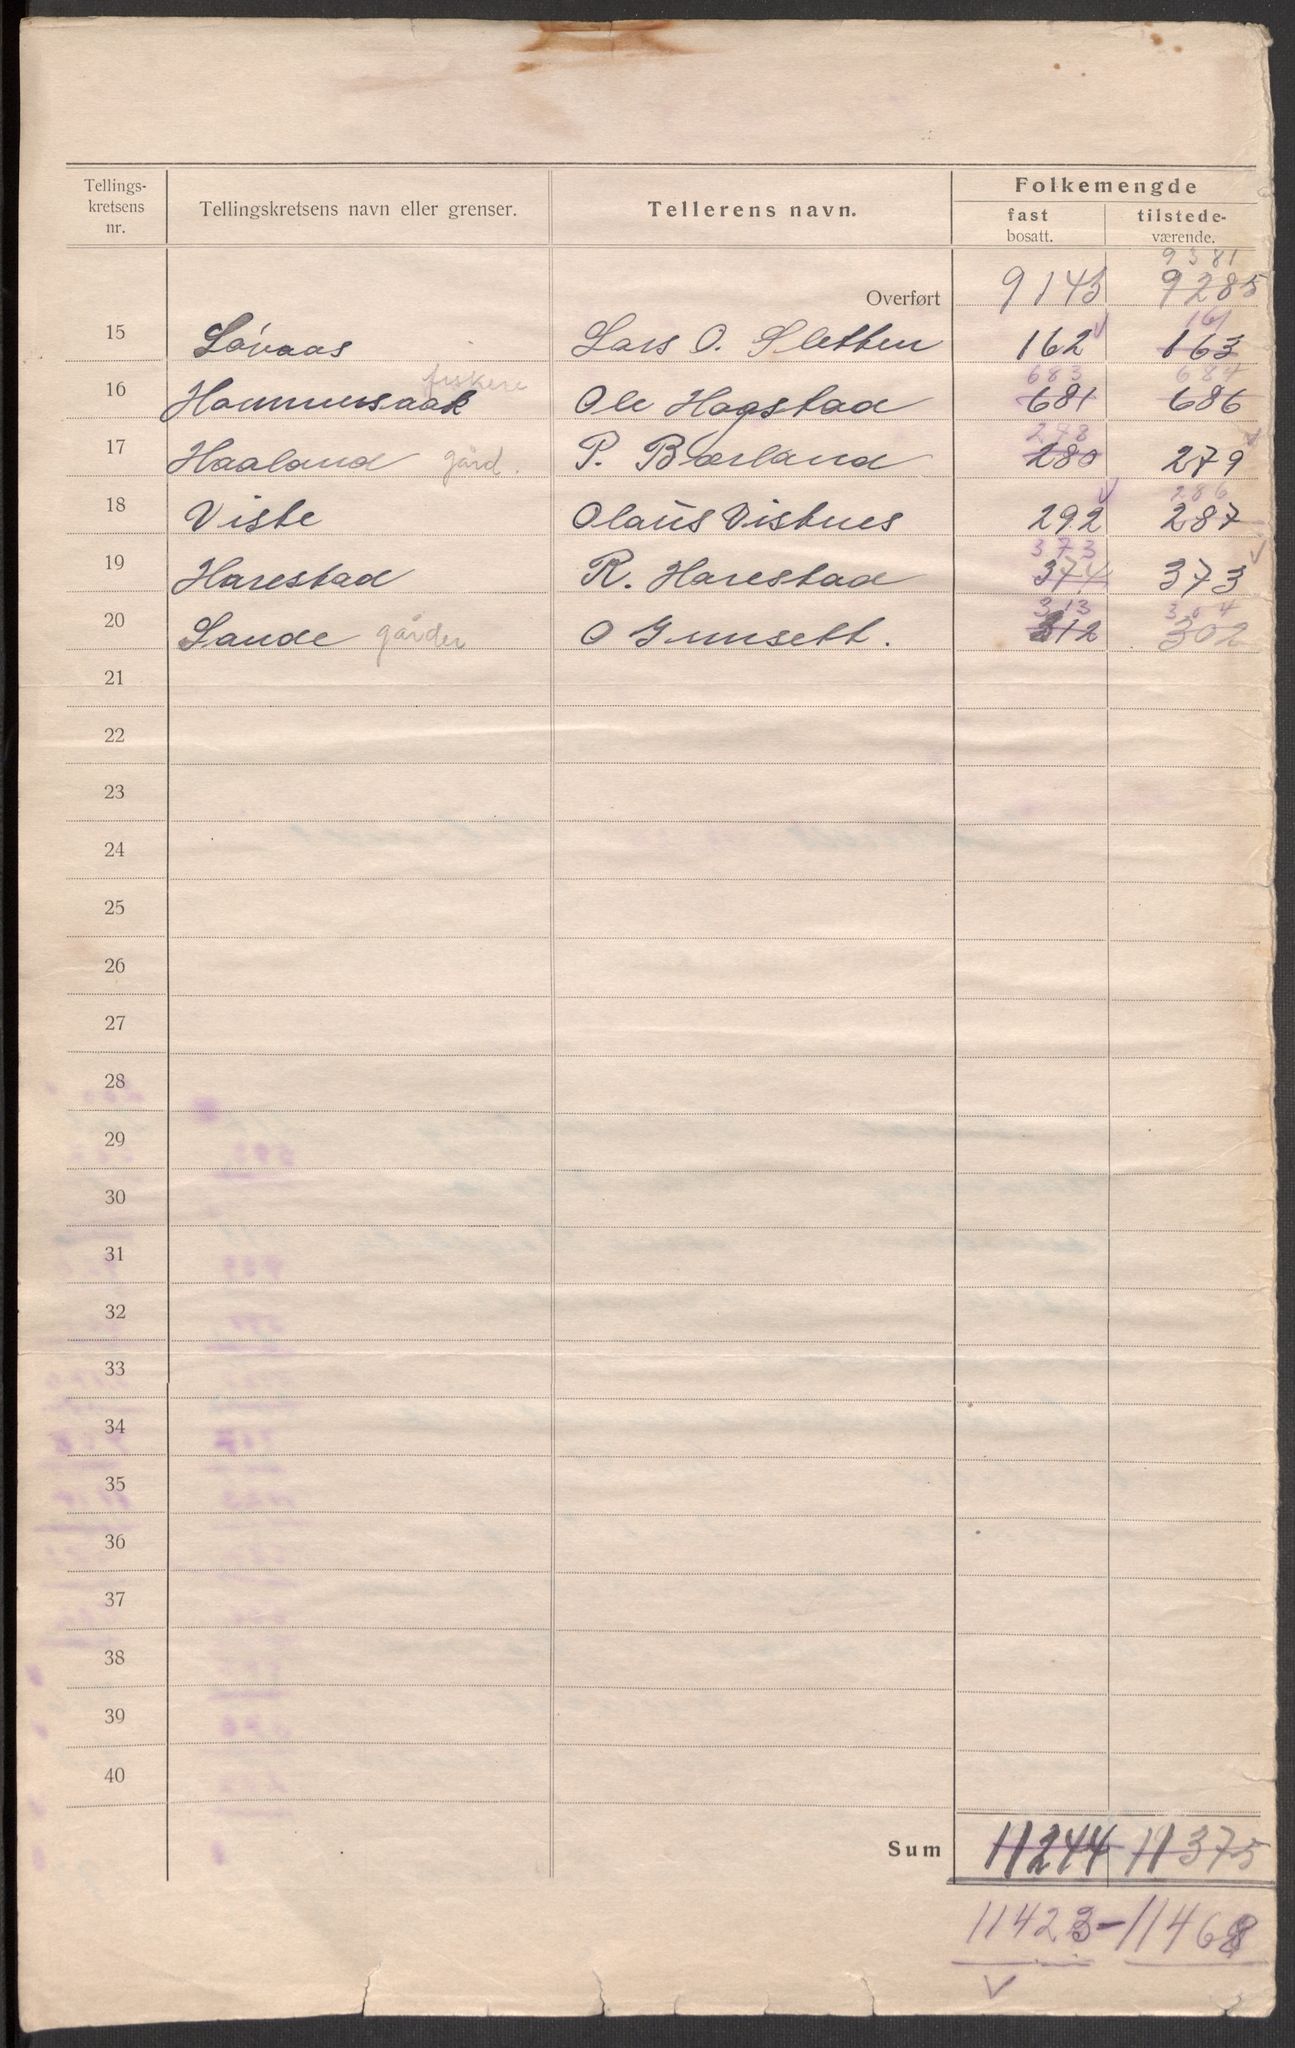 Tellings-
kretsens
nr.
Tellingskretsens navn eller grenser.
Tellerens navn.
Folkemengde
fast
bosatt.
tilstede-
værende.
9381
Overført 9143 9285
161
15 Løvaas Lars O. Sletten 162 163
fiskere 683 684
16 Hommersaak Ole Hogstad 681 686
278
17 Haaland gård. P. Bærland 280 279
286
18 Viste Olaus Vistnes 292 287
373
19 Harestad R. Harestad 374 373
313 304
20 Sande gårder O Grunsett. 312 302
21
22
23
24
25
26
27
28
29
30
31
32
33
34
35
36
37
38
39
40
Sum 11244 11375
11423 - 11468